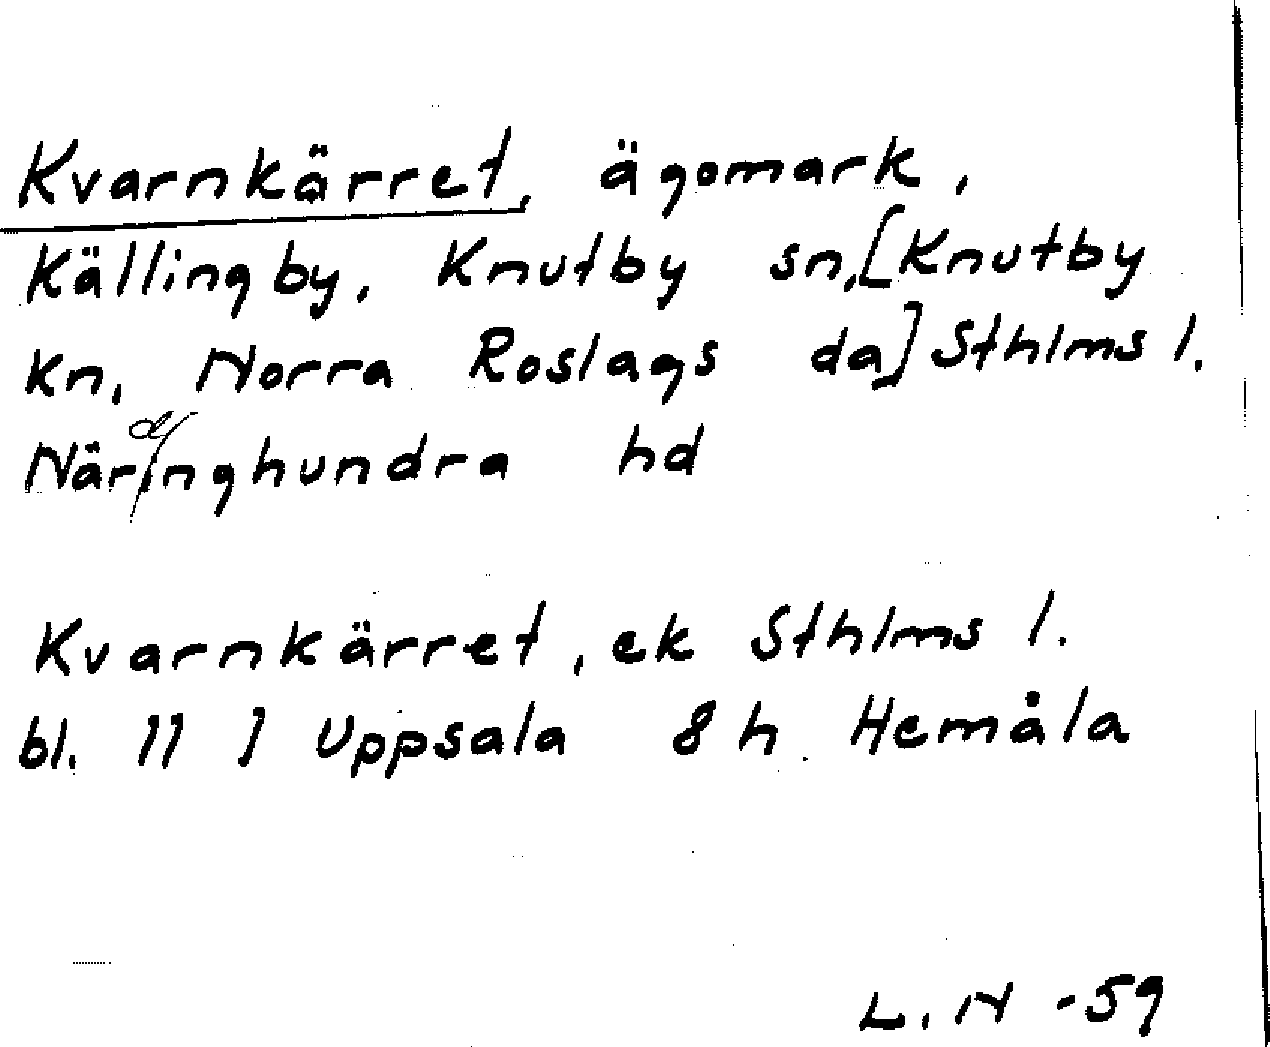 Kvarnkärret, ägomark,
Källingby, Knutby sn, [Knutby
kn, Norra Roslags da] Sthlms l.
Näringhundra hd
Kvarnkärret, ek Sthlms l.
bl. 11 I Uppsala 8 h Hemåla
L. N -59